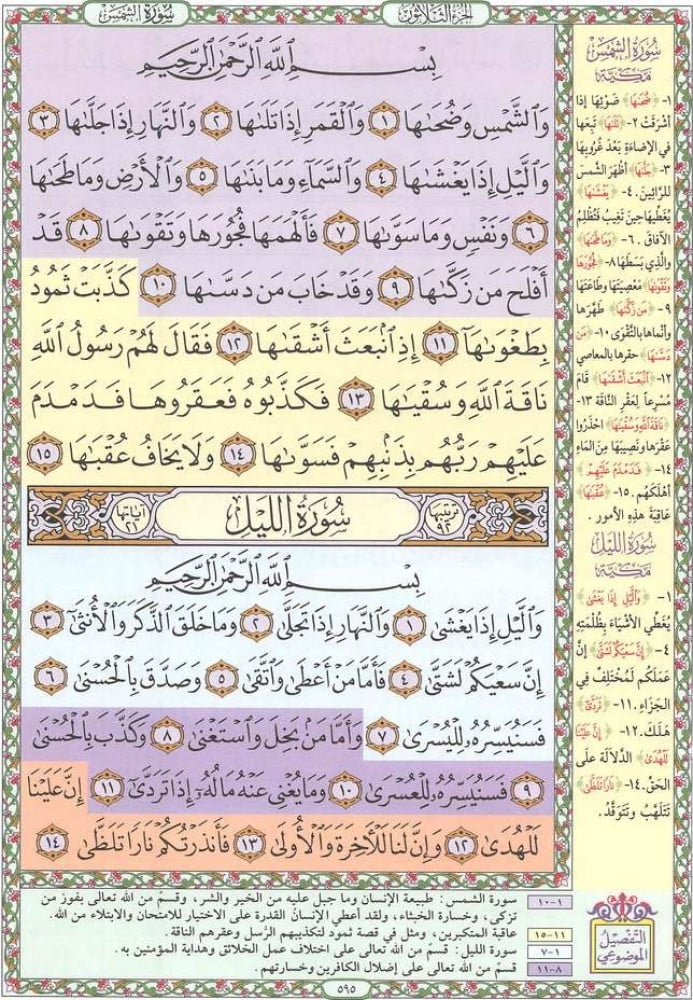 سورة الشمس
الجزء الثلاثون
بِسْمِ اللَّهِ الرَّحْمَٰنِ الرَّحِيمِ
وَالشَّمْسِ وَضُحَاهَا ١ وَالْقَمَرِ إِذَا تَلَاهَا ٢ وَالنَّهَارِ إِذَا جَلَّاهَا ٣
وَاللَّيْلِ إِذَا يَغْشَاهَا ٤ وَالسَّمَاءِ وَمَا بَنَاهَا ٥ وَالْأَرْضِ وَمَا طَحَاهَا
٦ وَنَفْسٍ وَمَا سَوَّاهَا ٧ فَأَلْهَمَهَا فُجُورَهَا وَتَقْوَاهَا ٨ قَدْ
أَفْلَحَ مَن زَكَّاهَا ٩ وَقَدْ خَابَ مَن دَسَّاهَا ١٠ كَذَّبَتْ ثَمُودُ
بِطَغْوَاهَا ١١ إِذِ انبَعَثَ أَشْقَاهَا ١٢ فَقَالَ لَهُمْ رَسُولُ اللَّهِ
نَاقَةَ اللَّهِ وَسُقْيَاهَا ١٣ فَكَذَّبُوهُ فَعَقَرُوهَا فَدَمْدَمَ
عَلَيْهِمْ رَبُّهُم بِذَنبِهِمْ فَسَوَّاهَا ١٤ وَلَا يَخَافُ عُقْبَاهَا ١٥
ترتيبها ٩٢ سورة الليل آياتها ٢١
بِسْمِ اللَّهِ الرَّحْمَٰنِ الرَّحِيمِ
وَاللَّيْلِ إِذَا يَغْشَىٰ ١ وَالنَّهَارِ إِذَا تَجَلَّىٰ ٢ وَمَا خَلَقَ الذَّكَرَ وَالْأُنثَىٰ ٣
إِنَّ سَعْيَكُمْ لَشَتَّىٰ ٤ فَأَمَّا مَنْ أَعْطَىٰ وَاتَّقَىٰ ٥ وَصَدَّقَ بِالْحُسْنَىٰ ٦
فَسَنُيَسِّرُهُ لِلْيُسْرَىٰ ٧ وَأَمَّا مَن بَخِلَ وَاسْتَغْنَىٰ ٨ وَكَذَّبَ بِالْحُسْنَىٰ
٩ فَسَنُيَسِّرُهُ لِلْعُسْرَىٰ ١٠ وَمَا يُغْنِي عَنْهُ مَالُهُ إِذَا تَرَدَّىٰ ١١ إِنَّ عَلَيْنَا
لَلْهُدَىٰ ١٢ وَإِنَّ لَنَا لَلْآخِرَةَ وَالْأُولَىٰ ١٣ فَأَنذَرْتُكُمْ نَارًا تَلَظَّىٰ ١٤
سورة الشمس
مكية
١- ﴿ضُحَاهَا﴾ ضَوْئِهَا إِذا
أشْرَقَتْ ٢- ﴿تَلَاهَا﴾ تَبِعَها
في الإضَاءَةِ بَعْدَ غُرُوبِها
٣- ﴿جَلَّاهَا﴾ أظْهَرَ الشَّمْسَ
للرَّائِينَ. ٤- ﴿يَغْشَاهَا﴾
يُغَطِّيهَا حِينَ تَغِيبُ فَتُظْلِمُ
الآفَاقُ. ٦- ﴿وَمَا طَحَاهَا﴾
والَّذِي بَسَطَهَا ٨- ﴿فُجُورَهَا
وَتَقْوَاهَا﴾ مَعْصِيَتَهَا وطَاعَتَهَا
٩- ﴿مَن زَكَّاهَا﴾ طَهَّرَها
وأنْمَاها بالتَّقْوَى ١٠- ﴿مَن
دَسَّاهَا﴾ حَقَرها بالمعاصي
١٢- ﴿انبَعَثَ أَشْقَاهَا﴾ قَامَ
مُسْرِعاً لِعَقْرِ النَّاقَةِ ١٣-
﴿نَاقَةَ اللَّهِ وَسُقْيَاهَا﴾ احْذَرُوا
عَقْرَهَا ونَصِيبَهَا مِنَ المَاءِ
١٤- ﴿فَدَمْدَمَ عَلَيْهِمْ﴾
أهْلَكَهُم. ١٥- ﴿عُقْبَاهَا﴾
عَاقِبَةَ هذِهِ الأُمور.
سورة الليل
مكية
١- ﴿وَاللَّيْلِ إِذَا يَغْشَىٰ﴾
يُغَطِّي الأشْيَاءَ بِظُلْمَتِهِ
٤- ﴿إِنَّ سَعْيَكُمْ لَشَتَّىٰ﴾ إنَّ
عَمَلَكُمْ لَمُخْتَلِفٌ فِي
الجَزَاءِ. ١١- ﴿تَرَدَّىٰ﴾
هَلَكَ. ١٢- ﴿إِنَّ عَلَيْنَا
لَلْهُدَىٰ﴾ الدَّلالَةَ عَلَى
الحَقِّ. ١٤- ﴿نَارًا تَلَظَّىٰ﴾
تَتَلَهَّبُ وتَتَوَقَّدُ.
التفصيل الموضوعي
١-١٠ سورة الشمس: طبيعة الإنسان وما جبل عليه من الخير والشر، وقسمٌ من الله تعالى بفوز من
تزكى، وخسارة الخبثاء، ولقد أعطي الإنسانُ القدرة على الاختيار للامتحان والابتلاء من الله.
١١-١٥ عاقبة المتكبرين، ومثل في قصة ثمود لتكذيبهم الرُّسل وعقرهم الناقة.
١-٧ سورة الليل: قسمٌ من الله تعالى على اختلاف عمل الخلائق وهداية المؤمنين به.
٨-١١ قسمٌ من الله تعالى على إضلال الكافرين وخسارتهم.
٥٩٥